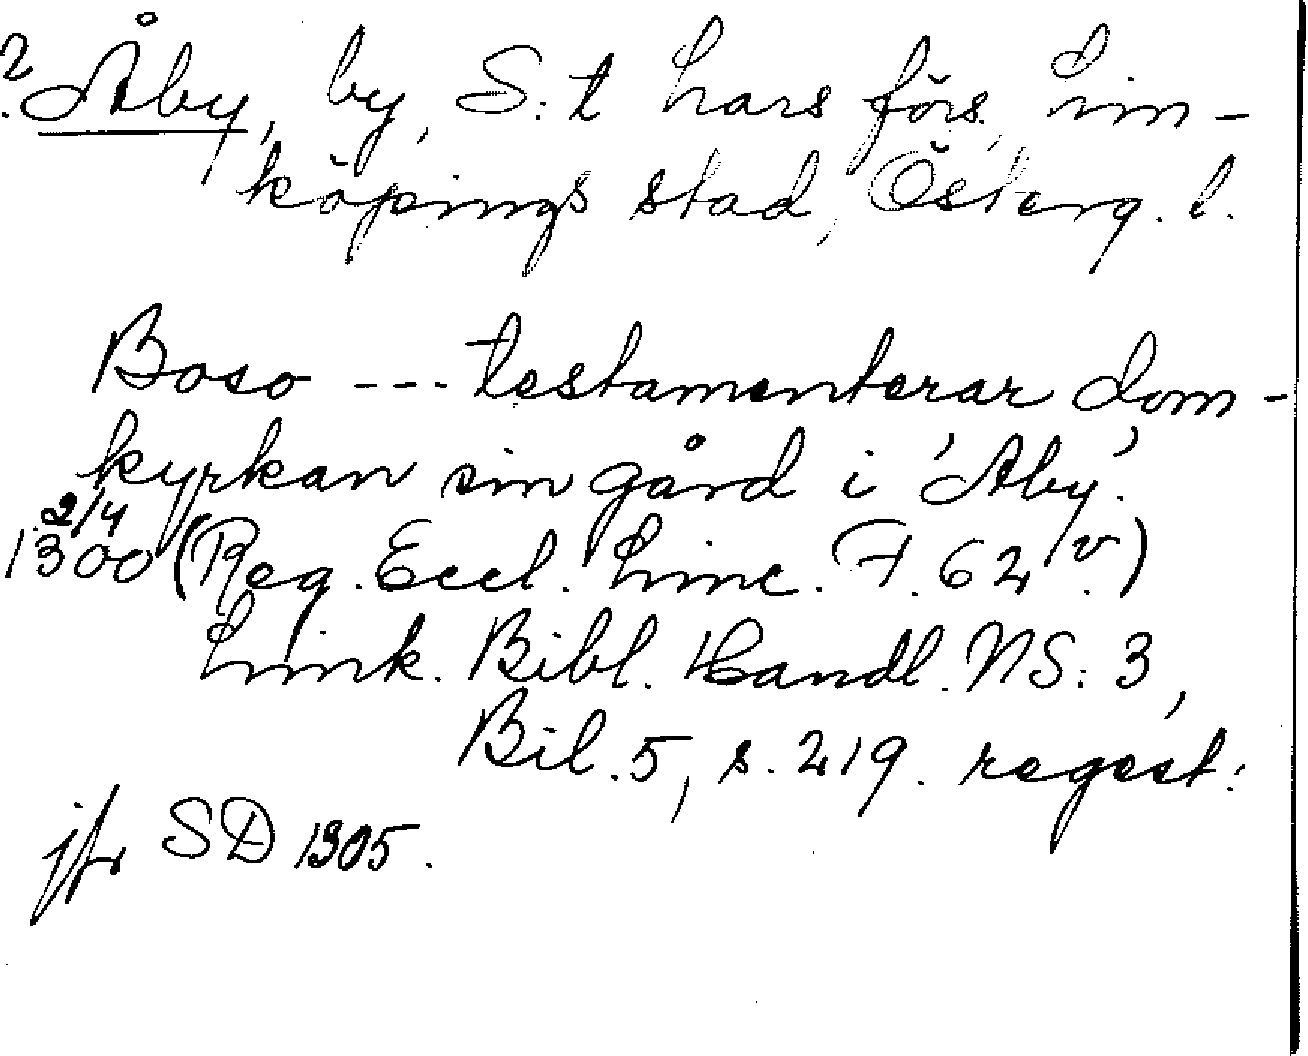 ? Åby, by, S:t Lars förs, Lin-
köpings stad, Österg. l.
Boso --- testamenterar dom-
kyrkan sin gård i 'Aby'.
2/4
1300 (Reg. Eccl. Linc. F. 62 v.)
Link. Bibl. Handl. NS: 3,
Bil. 5, s. 219. regest.
jfr SD 1305.